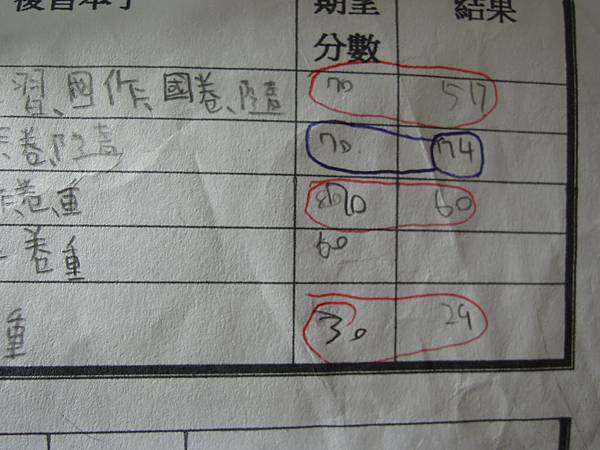 複習本子 期望分數 結果
習、國作、國卷、隨 70 57
卷、隨 70 74
卷、重 70 60
卷重 60
重 30 29